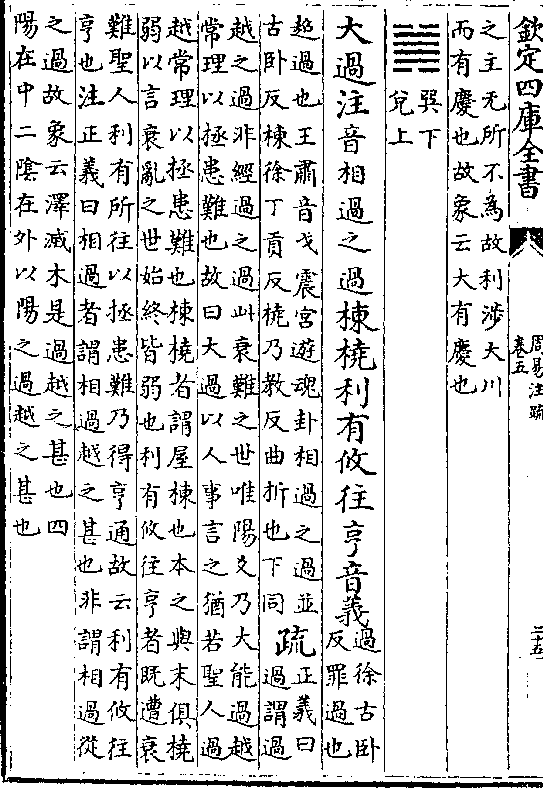 欽定四庫全書
周易注疏
卷五
二十五
之主无所不為故利涉大川
而有慶也故象云大有慶也
䷛
巽下
兌上
大過注音相過之過棟橈利有攸往亨音義
過徐古卧
反罪過也
超過也王肅音戈震宮遊魂卦相過之過並
古卧反棟徐丁貢反橈乃教反曲折也下同
疏
正義曰
過謂過
越之過非經過之過此衰難之世唯陽爻乃大能過越
常理以拯患難也故曰大過以人事言之猶若聖人過
越常理以拯患難也棟橈者謂屋棟也本之與末俱橈
弱以言衰亂之世始終皆弱也利有攸往亨者既遭衰
難聖人利有所往以拯患難乃得亨通故云利有攸往
亨也注正義曰相過者謂相過越之甚也非謂相過從
之過故象云澤滅木是過越之甚也四
陽在中二隂在外以陽之過越之甚也